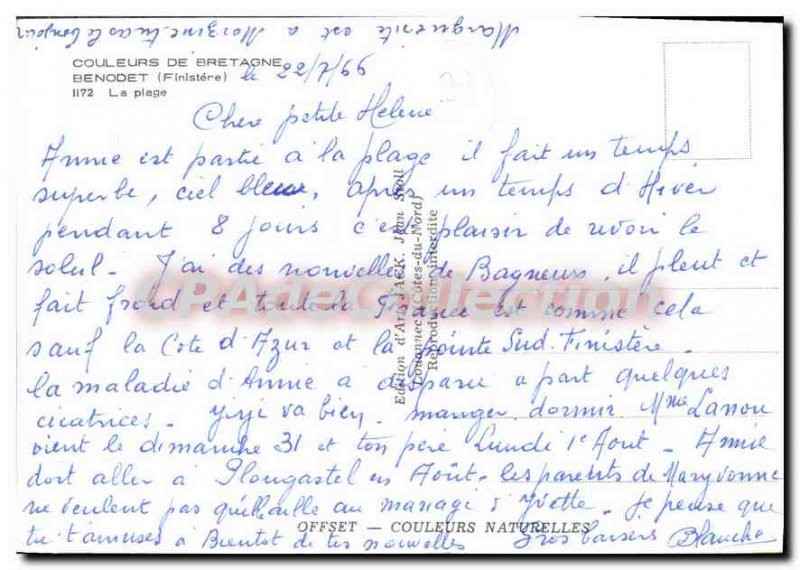 Marguerite est à Morzine. tu as le bonjour
COULEURS DE BRETAGNE
BENODET (Finistére)
1172 La plage
le 22/7/66
Chere petite Helene
Annie est partie à la plage il fait un temps
superbe, ciel bleu, après un temps d'Hiver
pendant 8 jours c'est plaisir de revoir le
soleil - J'ai des nouvelles de Bagneux, il pleut et
fait froid et toute la France est comme cela
sauf la Cote d'Azur et la pointe Sud-Finistère.
la maladie d'Annie a disparu a part quelques
cicatrices - va bien, manger, dormir. Mme Lanou
vient le dimanche 31 et ton père Lundi 1e Aout - Annie
doit aller à Plougastel en Août, les parents de Maryvonne
ne veulent pas qu'elle aille au mariage d'Yvette. Je pense que
tu t'amuses à Bientot de tes nouvelles Gros baisers Blanche
Edition d'Art JACK, Jean Stoll
Louannec (Côtes-du-Nord)
Reproduction interdite
OFFSET — COULEURS NATURELLES
CPAdeCollection